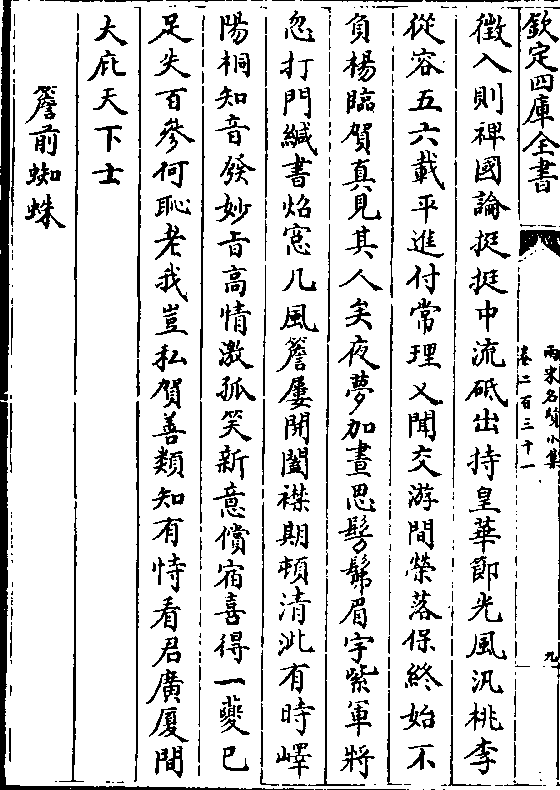 欽定四庫全書
兩宋名賢小集
卷二百三十一
九
徴入則禆國論挺挺中流砥出持皇華節光風汎桃李
從容五六載平進付常理乂聞交游間榮落保終始不
負楊臨賀真見其人矣夜夢加晝思髣髴眉宇紫軍將
忽打門緘書炤窓几風簷屢開闔襟期頓清泚有時嶧
陽桐知音發妙㫖高情激孤笑新意償宿喜得一夔已
足失百參何恥老我豈私賀善類知有恃看君廣厦間
大庇天下士
簷前蜘蛛